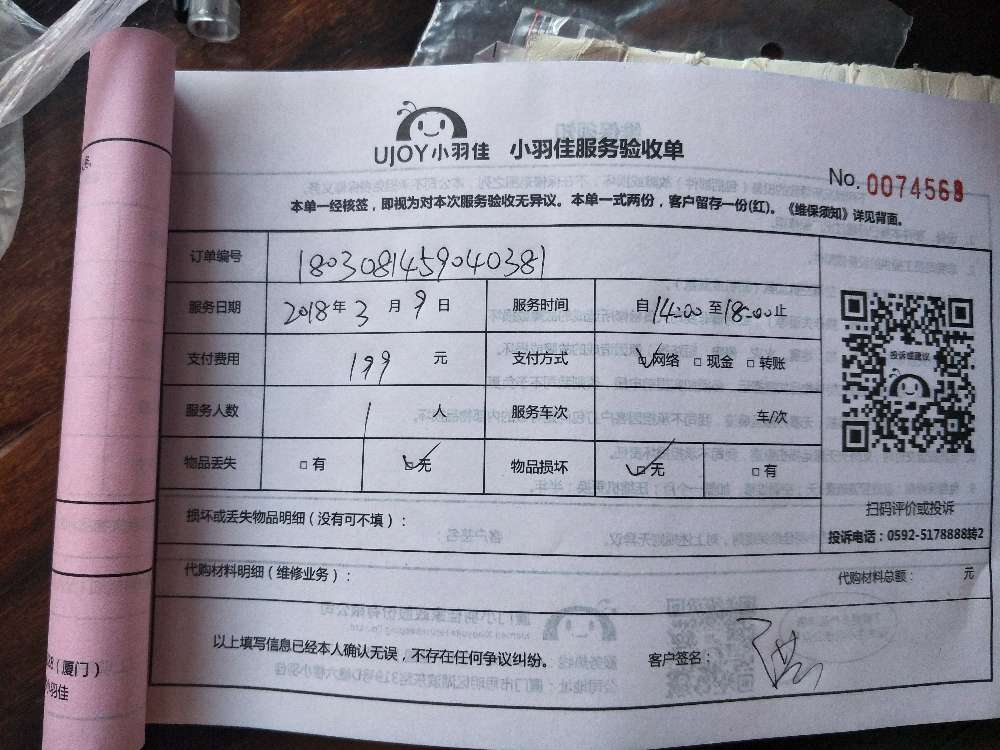 UJOY小羽佳 小羽佳服务验收单
No. 0074569
本单一经核签，即视为对本次服务验收无异议。本单一式两份，客户留存一份(红)。《维保须知》详见背面。
订单编号 1803081459040381
服务日期 2018年3月9日 服务时间 自14:00至18:00止
支付费用 199元 支付方式 网络 现金 转账
服务人数 1人 服务车次 车/次
物品丢失 有 无 物品损坏 无 有
投诉或建议
扫码评价或投诉
投诉电话：0592-5178888转2
损坏或丢失物品明细（没有可不填）：
代购材料明细（维修业务）： 代购材料总额： 元
以上填写信息已经本人确认无误，不存在任何争议纠纷。 客户签名：
（厦门）
小羽佳